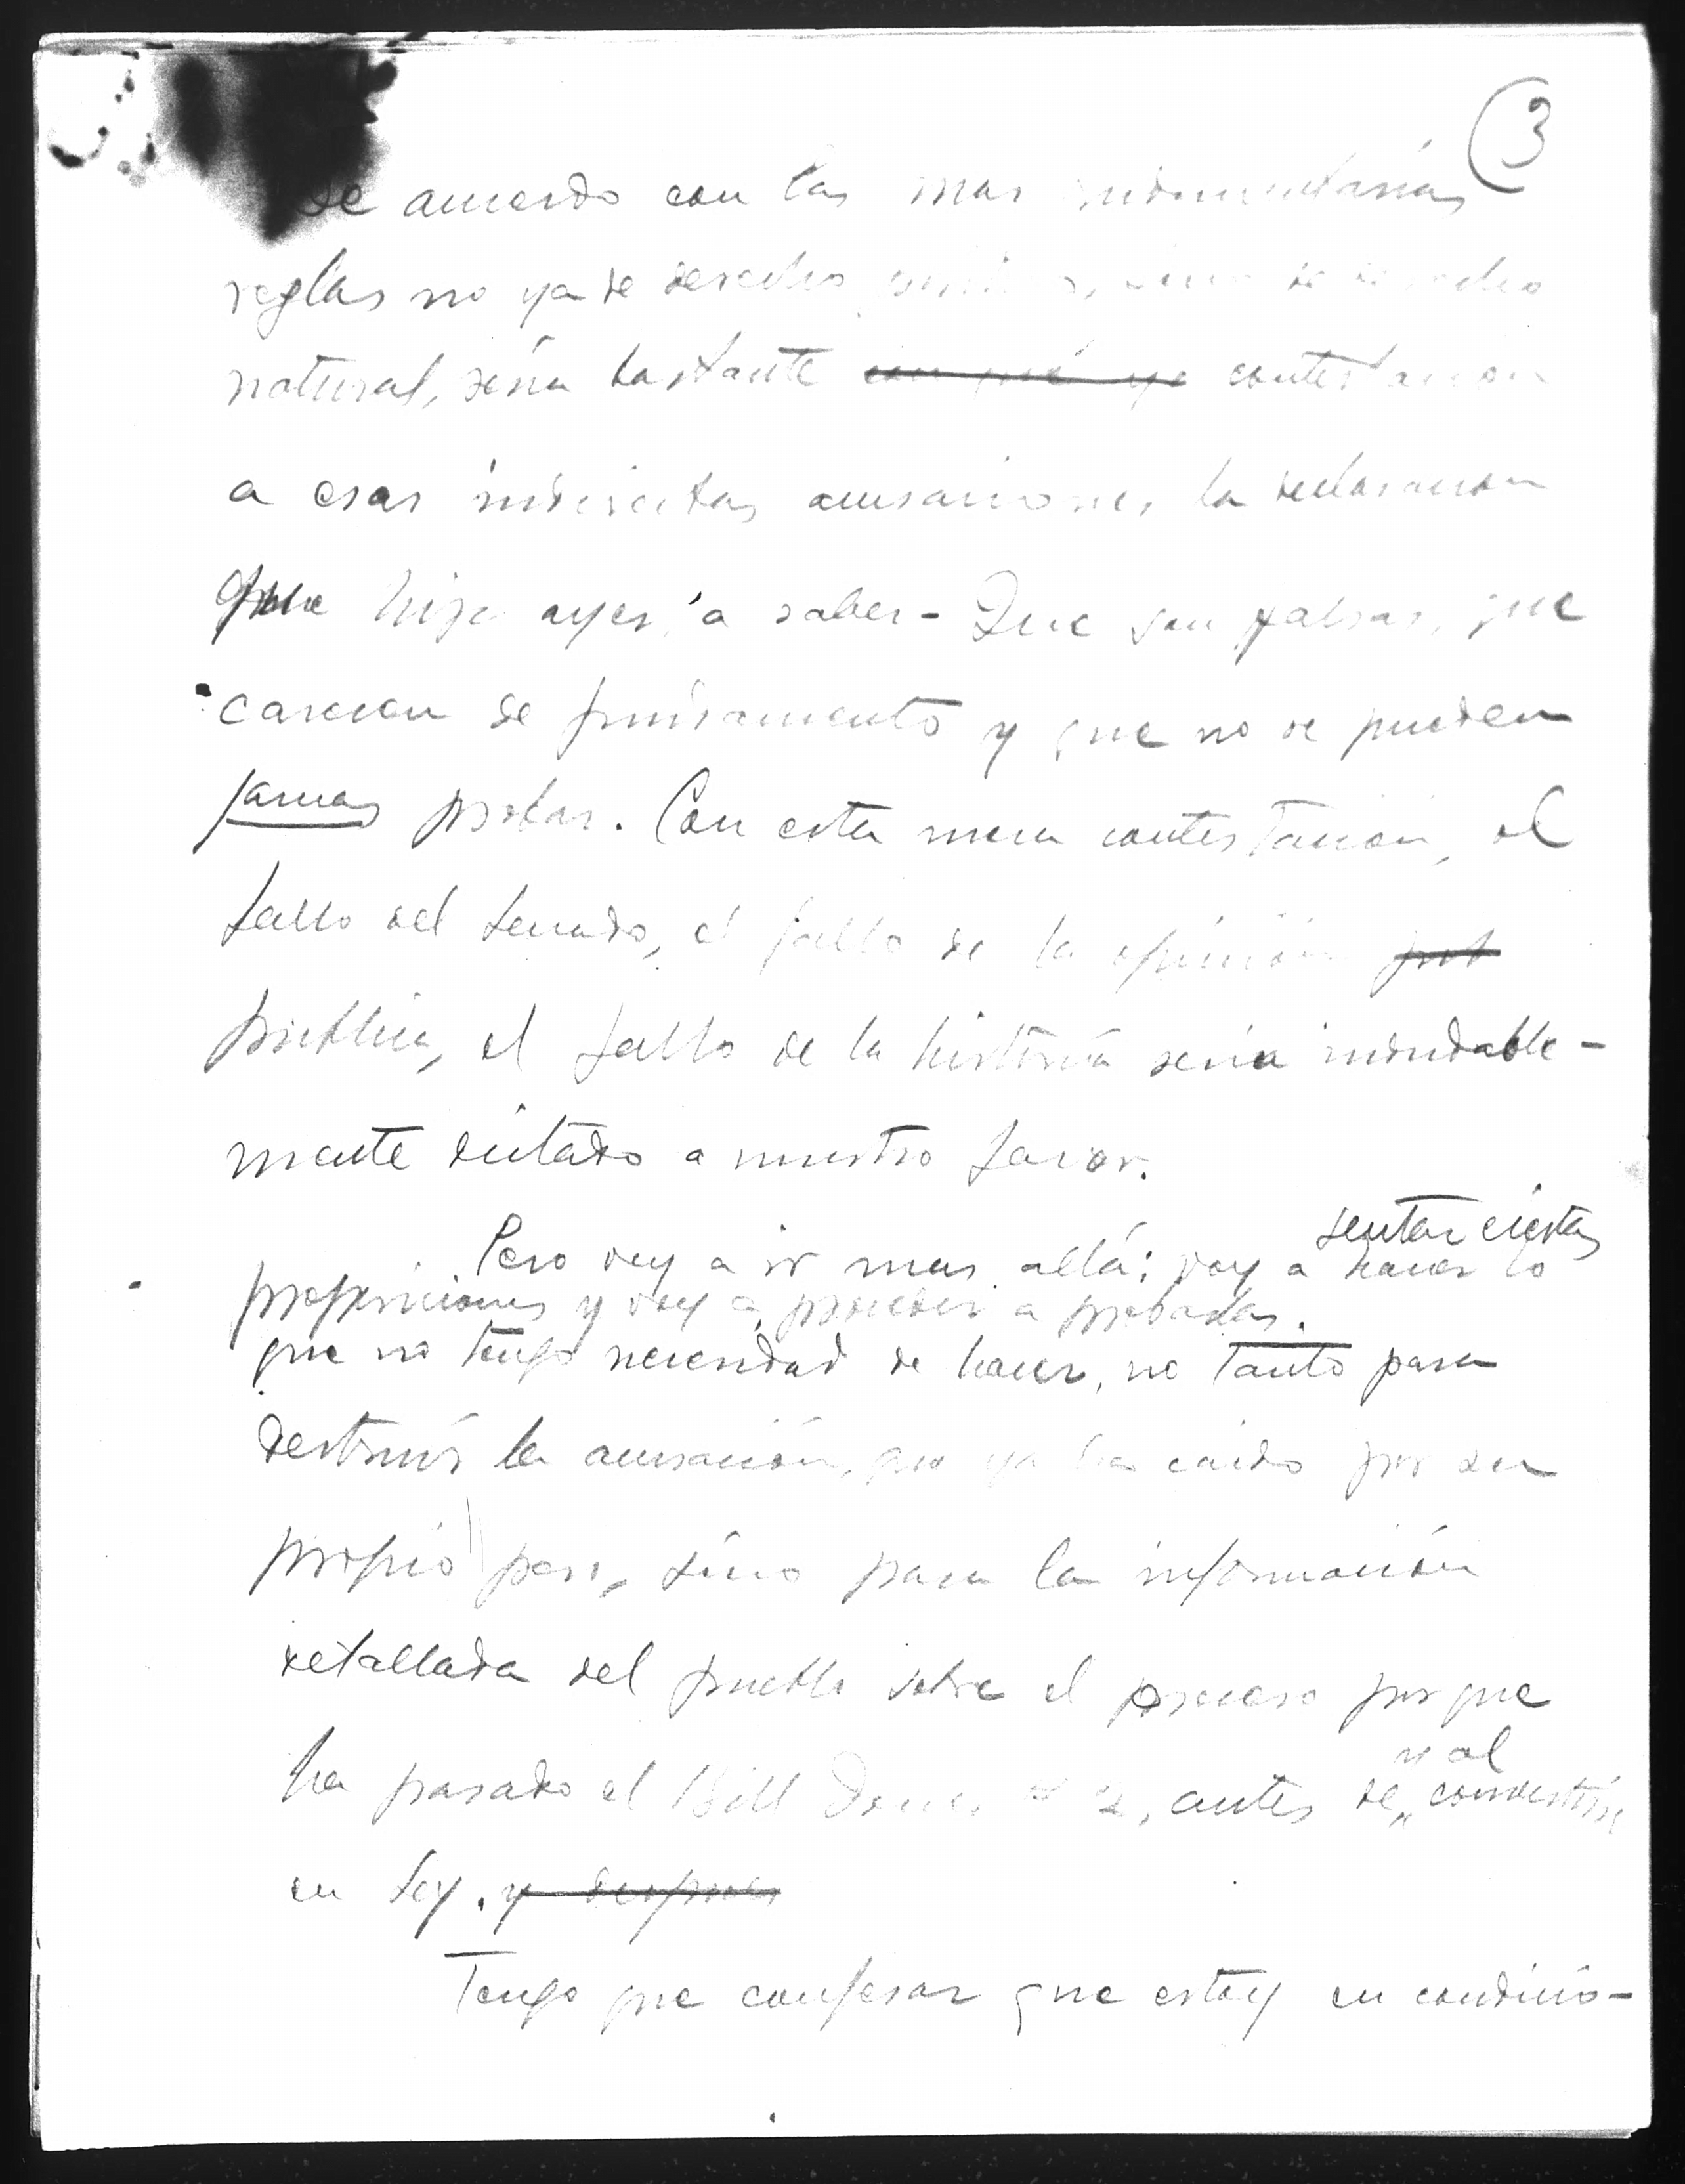 3
De acuerdo con las mas rudimentarias
reglas no ya de derecho sino de derecho
natural, sería bastante con que yo contestacion
a esas indirectas acusaciones, la declaracion
que hize ayer, a saber - Que son falsas, que
carecen de fundamento y que no se pueden
jamas probar. Con esta mera contestacion, el
fallo del Senado, el fallo de la opinión pub
publica, el fallo de la historia seria indudable-
mente dictado a nuestro favor.
sentar ciertas
Pero voy a ir mas allá; voy a hacer lo
proposiciones y voy a proceder a probarlas.
que no tengo necesidad de hacer, no tanto para
destruir la acusación, que ya ha caido por su
propio peso, sino para la información
detallada del pueblo sobre el proceso porque
ha pasado el Bill Jones No 2, antes de
convertirse
en Ley. y despues
Tengo que confesar que estoy en condicio-